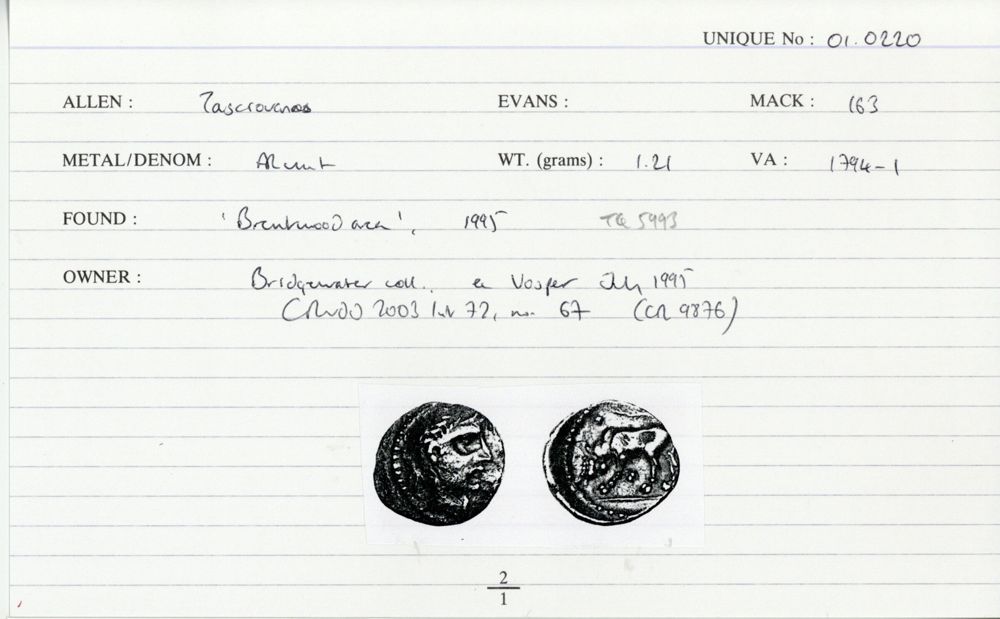 UNIQUE No : 01.0220
ALLEN : Tasciovanos EVANS : MACK : 163
METAL/DENOM : AR unit WT. (grams) : 1.21 VA : 1794-1
FOUND : 'Brentwood area', 1995 TQ 5993
OWNER : Bridgewater coll., ex Vosper July 1995
CNWDD 2003 list 72, no. 67 (CR 9876)
2
1